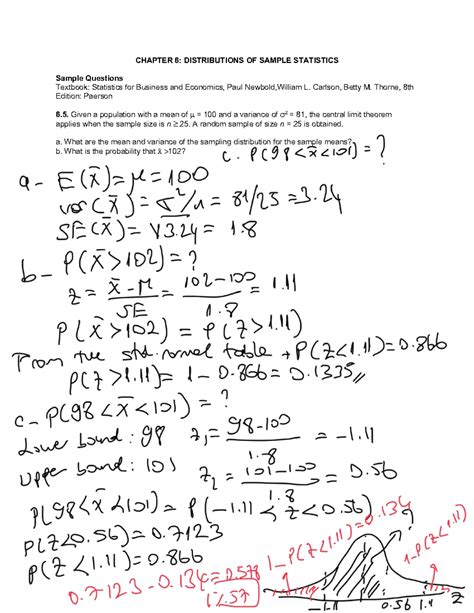 CHAPTER 6: DISTRIBUTIONS OF SAMPLE STATISTICS
Sample Questions
Textbook: Statistics for Business and Economics, Paul Newbold,William L. Carlson, Betty M. Thorne, 8th
Edition: Paerson
6.5. Given a population with a mean of μ = 100 and a variance of σ² = 81, the central limit theorem
applies when the sample size is n ≥ 25. A random sample of size n = 25 is obtained.
a. What are the mean and variance of the sampling distribution for the sample means?
b. What is the probability that x̄ >102?
c. P(98<x̄<101)=?
a- E(x̄)=μ=100
var(x̄)=σ²/n = 81/25=3.24
SE(x̄)= √3.24 = 1.8
b- P(x̄>102)=?
z = x̄-μ/SE = 102-100/1.8 = 1.11
P(x̄>102) = P(z>1.11)
From the std. normal table → P(z<1.11)=0.866
P(z>1.11)= 1-0.866=0.1335//
c- P(98<x̄<101) = ?
Lower bound: 98 z₁=98-100/1.8 = -1.11
Upper bound: 101 z₂=101-100/1.8 = 0.56
P(98<x̄<101)= P(-1.11<z<0.56)
P(z<0.56)=0.7123
P(z<1.11)=0.866
1-P(z<1.11)=0.134
?
1-P(z<1.11)
0.7123-0.134=0.578
-1.11 0.56 1.1 z